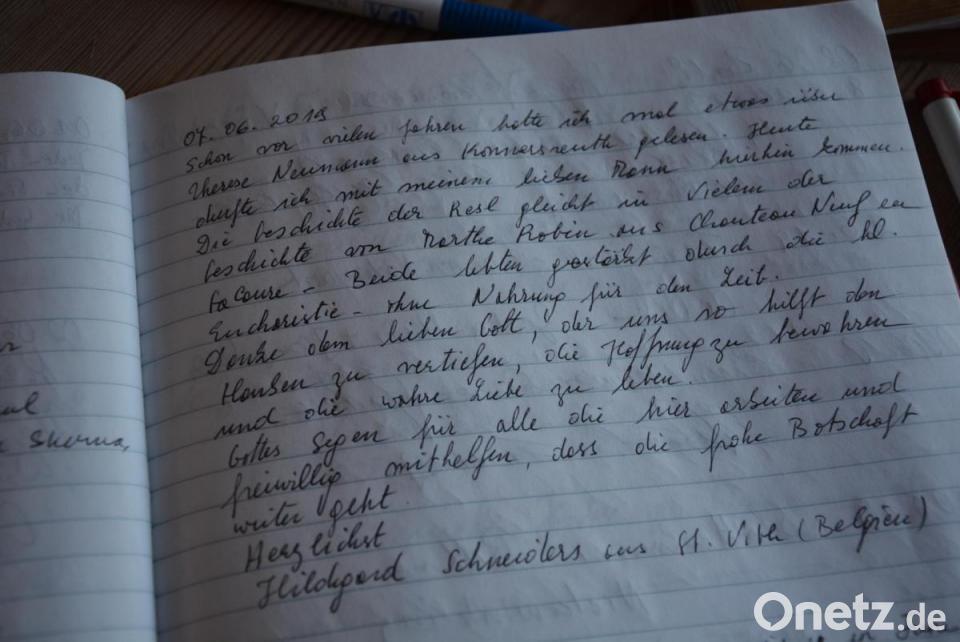 07.06.2019
Schon vor vielen Jahren hatte ich mal etwas über
Therese Neumann aus Konnersreuth gelesen. Heute
durfte ich mit meinem lieben Mann hierhin kommen.
Die Geschichte der Resl gleicht in Vielem der
Geschichte von Marthe Robin aus Chanteau Neuf en
Facoure - Beide lebten gestärkt durch die hl.
Eucharistie - ohne Nahrung für den Leib.
Danke dem lieben Gott, der uns so hilft den
Glauben zu vertiefen, die Hoffnung zu bewahren
und die wahre Liebe zu leben.
Gottes Segen für alle die hier arbeiten und
freiwillig mithelfen, dass die frohe Botschaft
weiter geht.
Herzlichst
Hildegard Schneiders aus St. Vith (Belgien)
Onetz.de